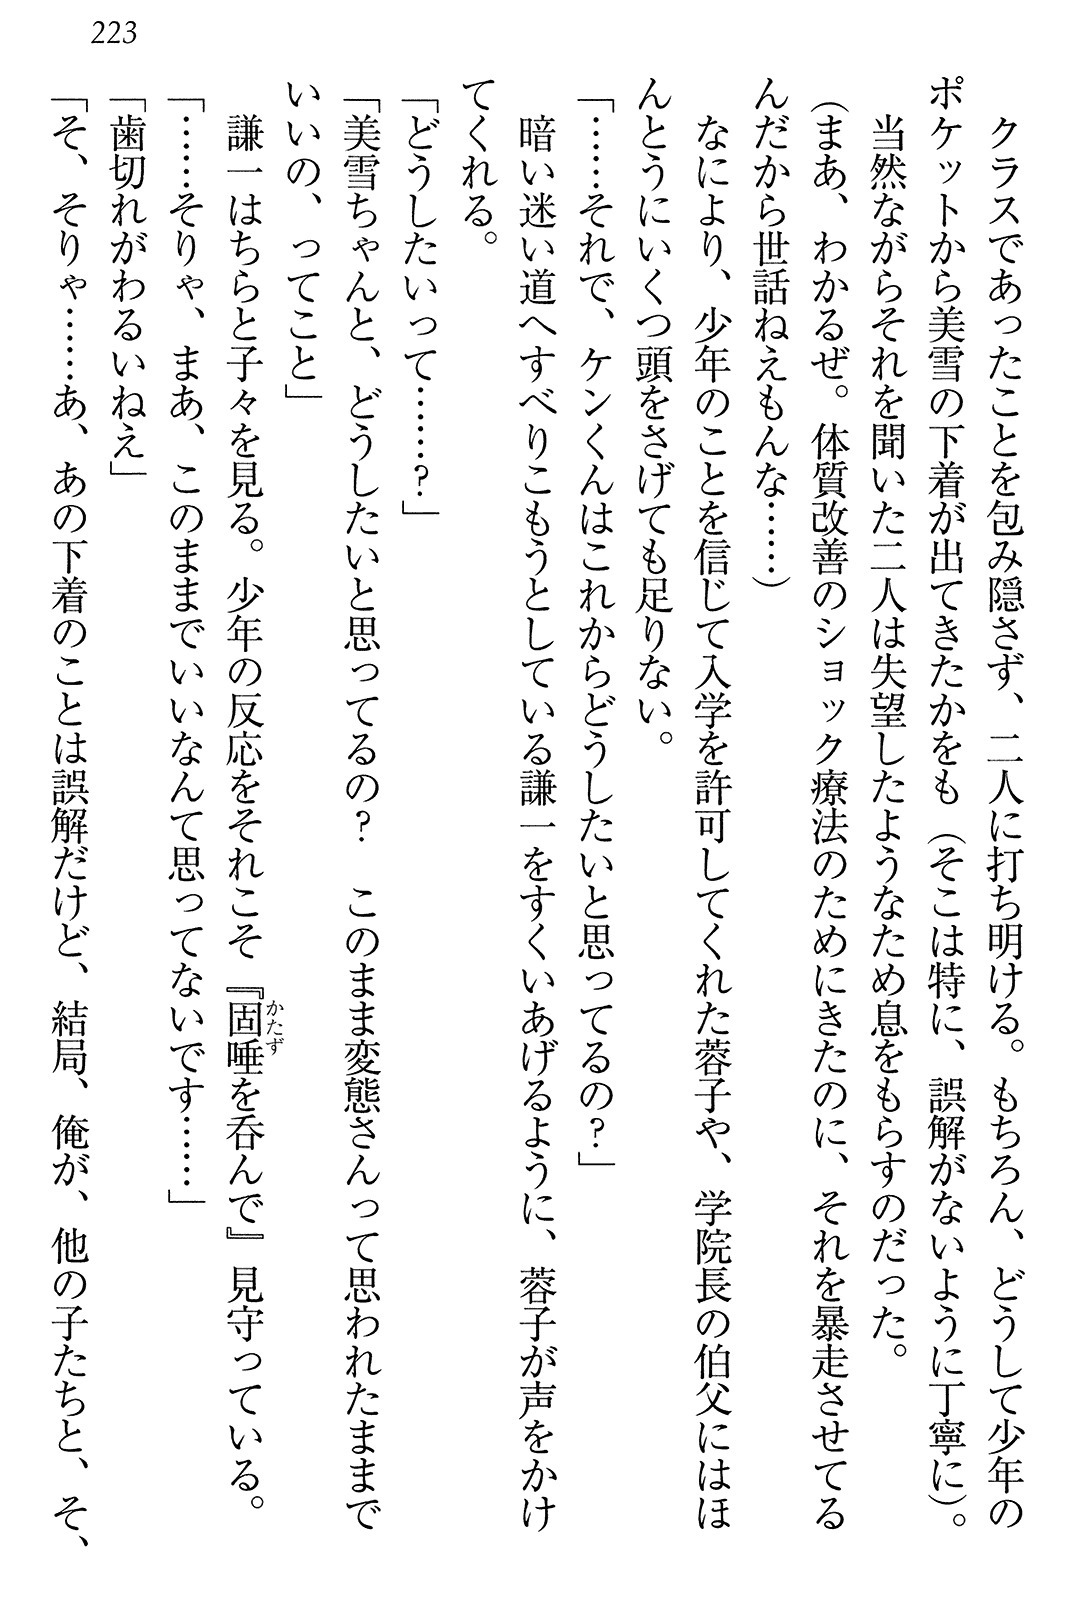 223
クラスであったことを包み隠さず、二人に打ち明ける。もちろん、どうして少年の
ポケットから美雪の下着が出てきたかをも（そこは特に、誤解がないように丁寧に）。
当然ながらそれを聞いた二人は失望したようなため息をもらすのだった。
（まあ、わかるぜ。体質改善のショック療法のためにきたのに、それを暴走させてる
んだから世話ねえもんな……）
なにより、少年のことを信じて入学を許可してくれた蓉子や、学院長の伯父にはほ
んとうにいくつ頭をさげても足りない。
「……それで、ケンくんはこれからどうしたいと思ってるの？」
暗い迷い道へすべりこもうとしている謙一をすくいあげるように、蓉子が声をかけ
てくれる。
「どうしたいって……？」
「美雪ちゃんと、どうしたいと思ってるの？　このまま変態さんって思われたままで
いいの、ってこと」
謙一はちらと子々を見る。少年の反応をそれこそ『固唾を呑んで』見守っている。
かたず
「……そりゃ、まあ、このままでいいなんて思ってないです……」
「歯切れがわるいねえ」
「そ、そりゃ……あ、あの下着のことは誤解だけど、結局、俺が、他の子たちと、そ、